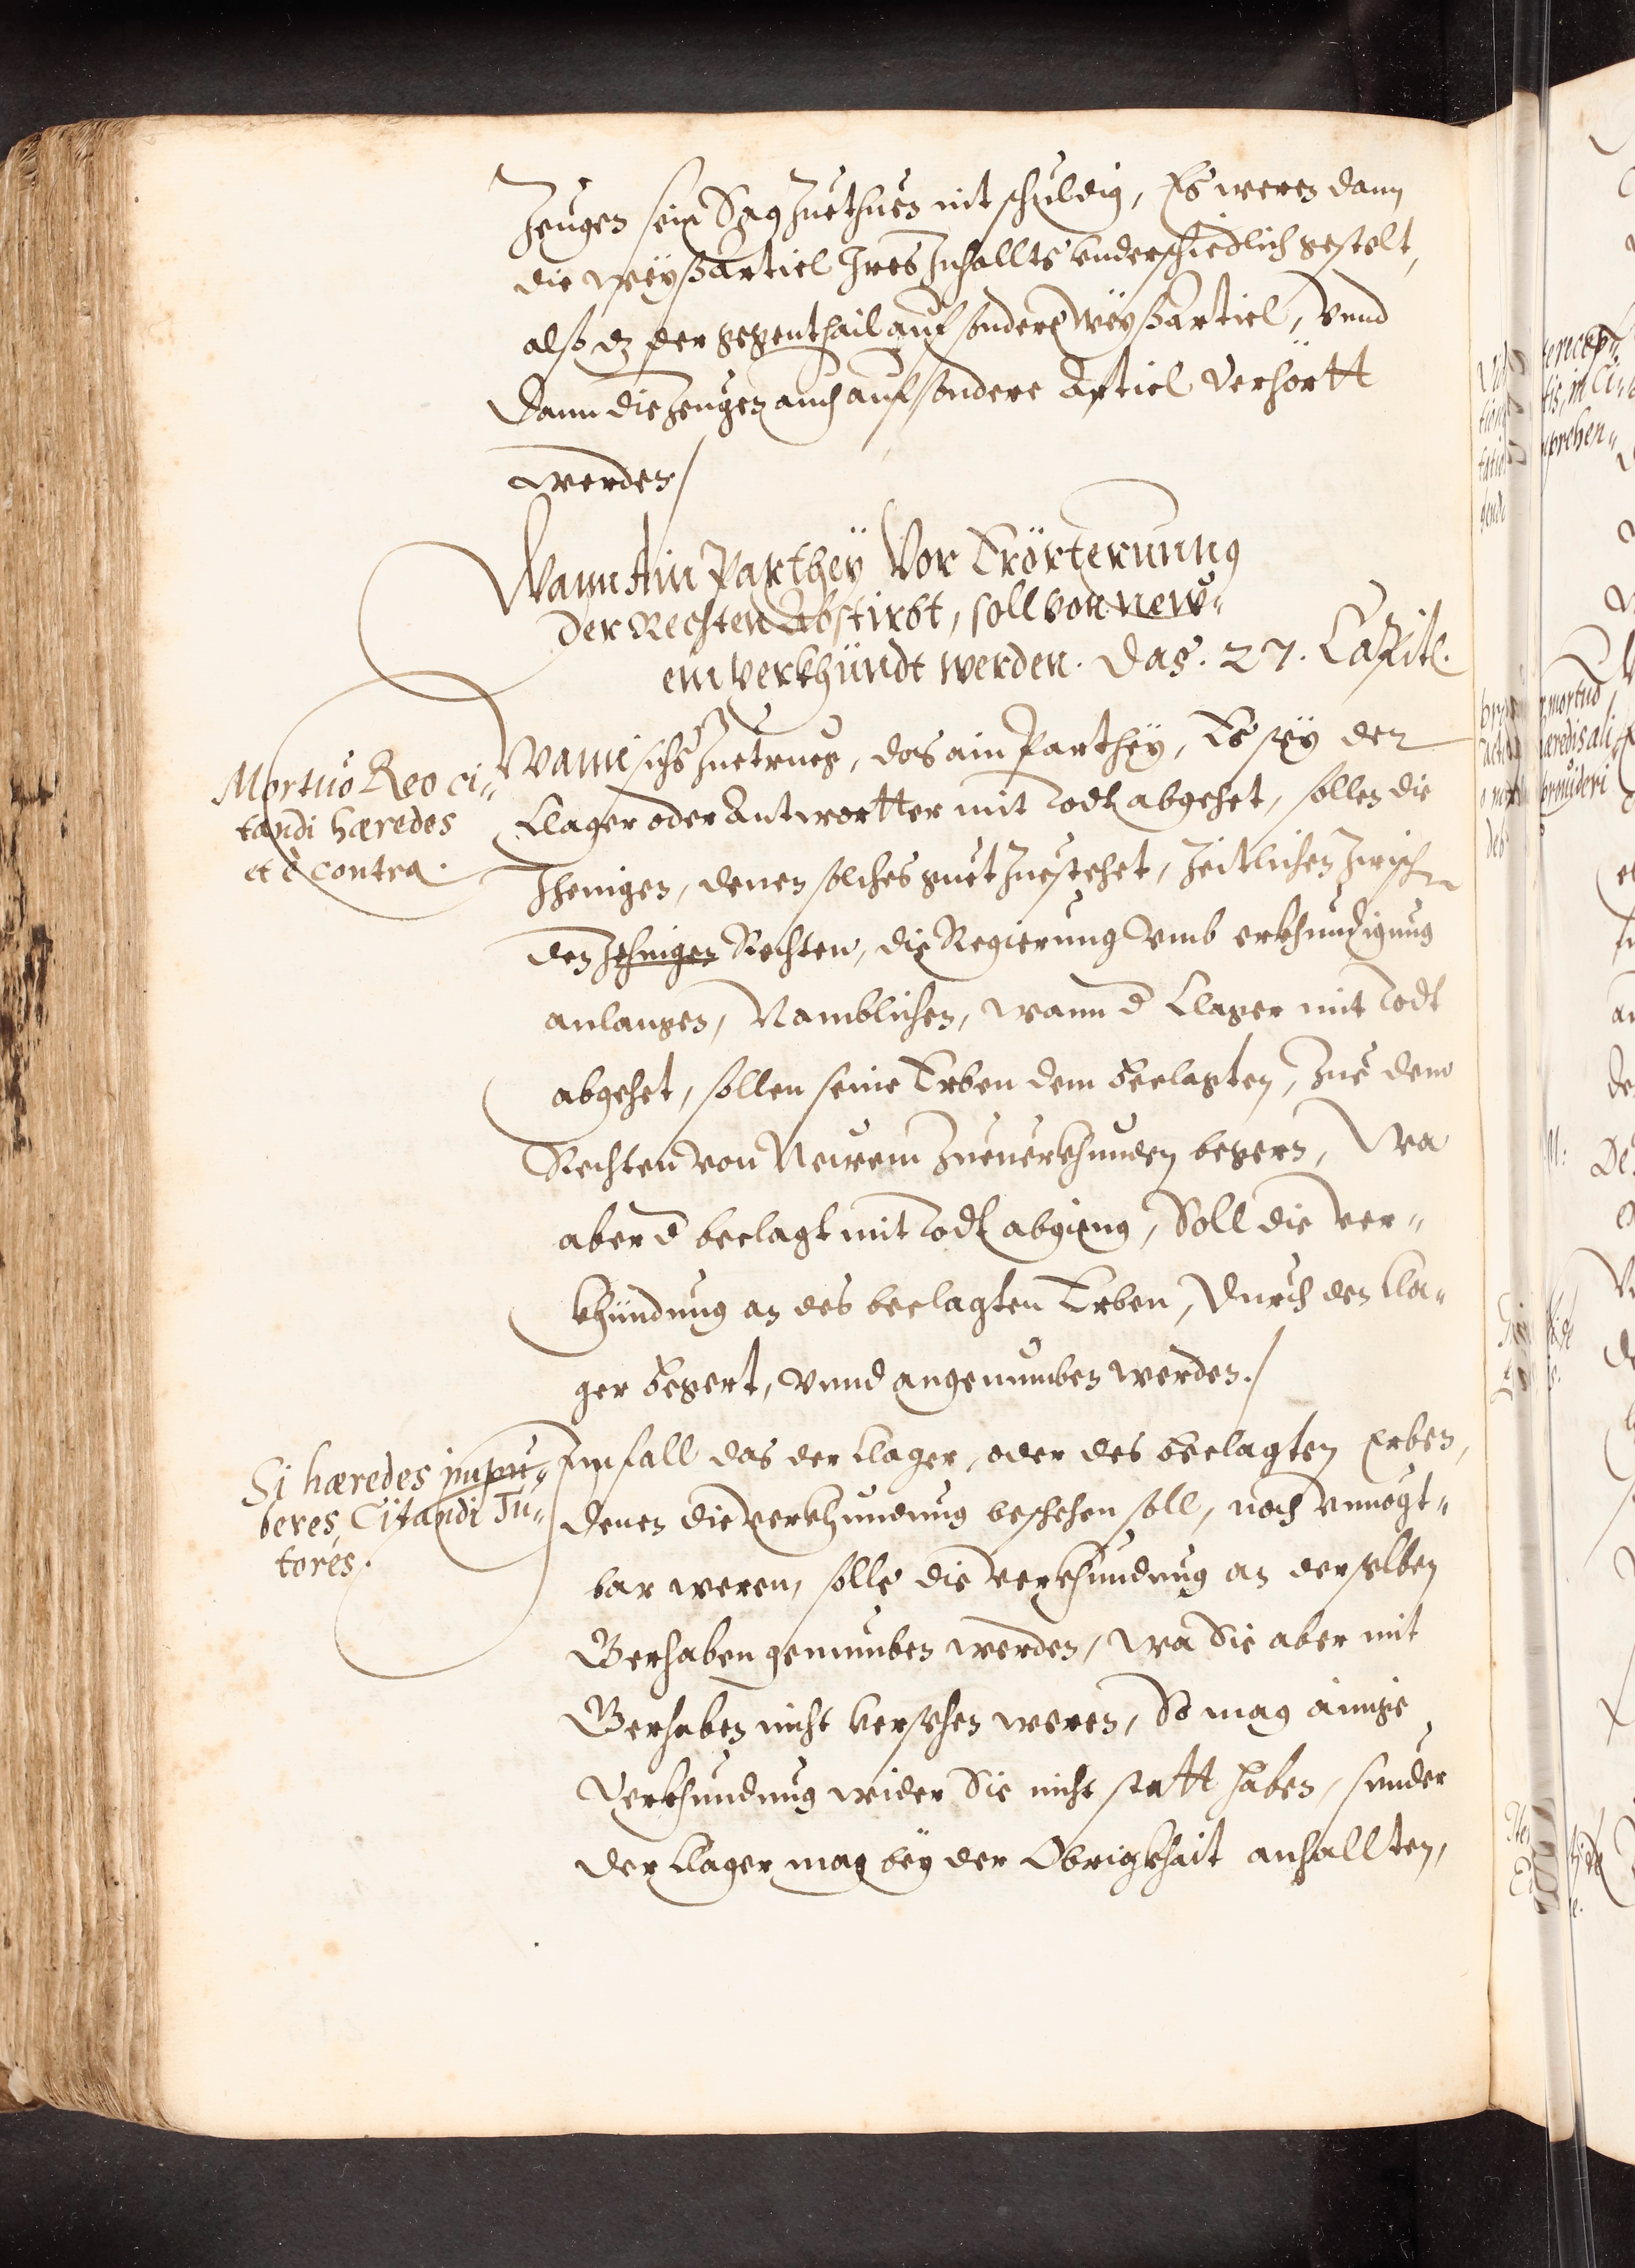 Zeugen sein Sag Zuethuen nit schuldig, Es weren dann
die weyßartiel Ires Inhallts underschiedlich gestelt,
alß dz der gegenthail auf sondere weyßartiel, vnnd
Dann die Zeugen auch auf sondere Artiel verhörtt
werden/
Wann Ain Parthey Vor Erörterunng
der Rechten Abstirbt, soll von new„
em verkhündt werden. Das. 27. Capitl.
Mortuo Reo ci„
tandi hæredes
et è contra.
Wann sichs Zuetrueg, das ain Parthey, Es sey der
Clager oder Antwortter mit Todt abgehet, sollen die
Jhenigen, denen solches guet Zuestehet, Zeitlichen Zwischen
den Jhenigen Rechten, die Regierung vmb erkhundigung
anlangen, Namblichen, wann d Clager mit Todt
abgehet, sollen seine Erben dem beclagten, Zue dem
Rechten von Newem Zueuerkhunden begern, Wa
aber d beclagt mit Todt abgieng, Soll die ver„
khündung an des beclagten Erben, Durch den Cla„
ger begert, vnnd angenumben werden./
Si hæredes impu„
beres, Citandi Tu„
tores.
Im fall das der Clager, oder des beclagten Erben,
denen die verkhundung beschehen soll, noch vnuogt„
bar weren, solle die verkhundung an derselben
Gerhaben genumben werden, wa Sie aber mit
Gerhaben nicht versehen weren, So mag ainige
Verkhundung wider Sie nicht statt haben, sunder
der Clager mag bey der Obrigkhait anhallten,